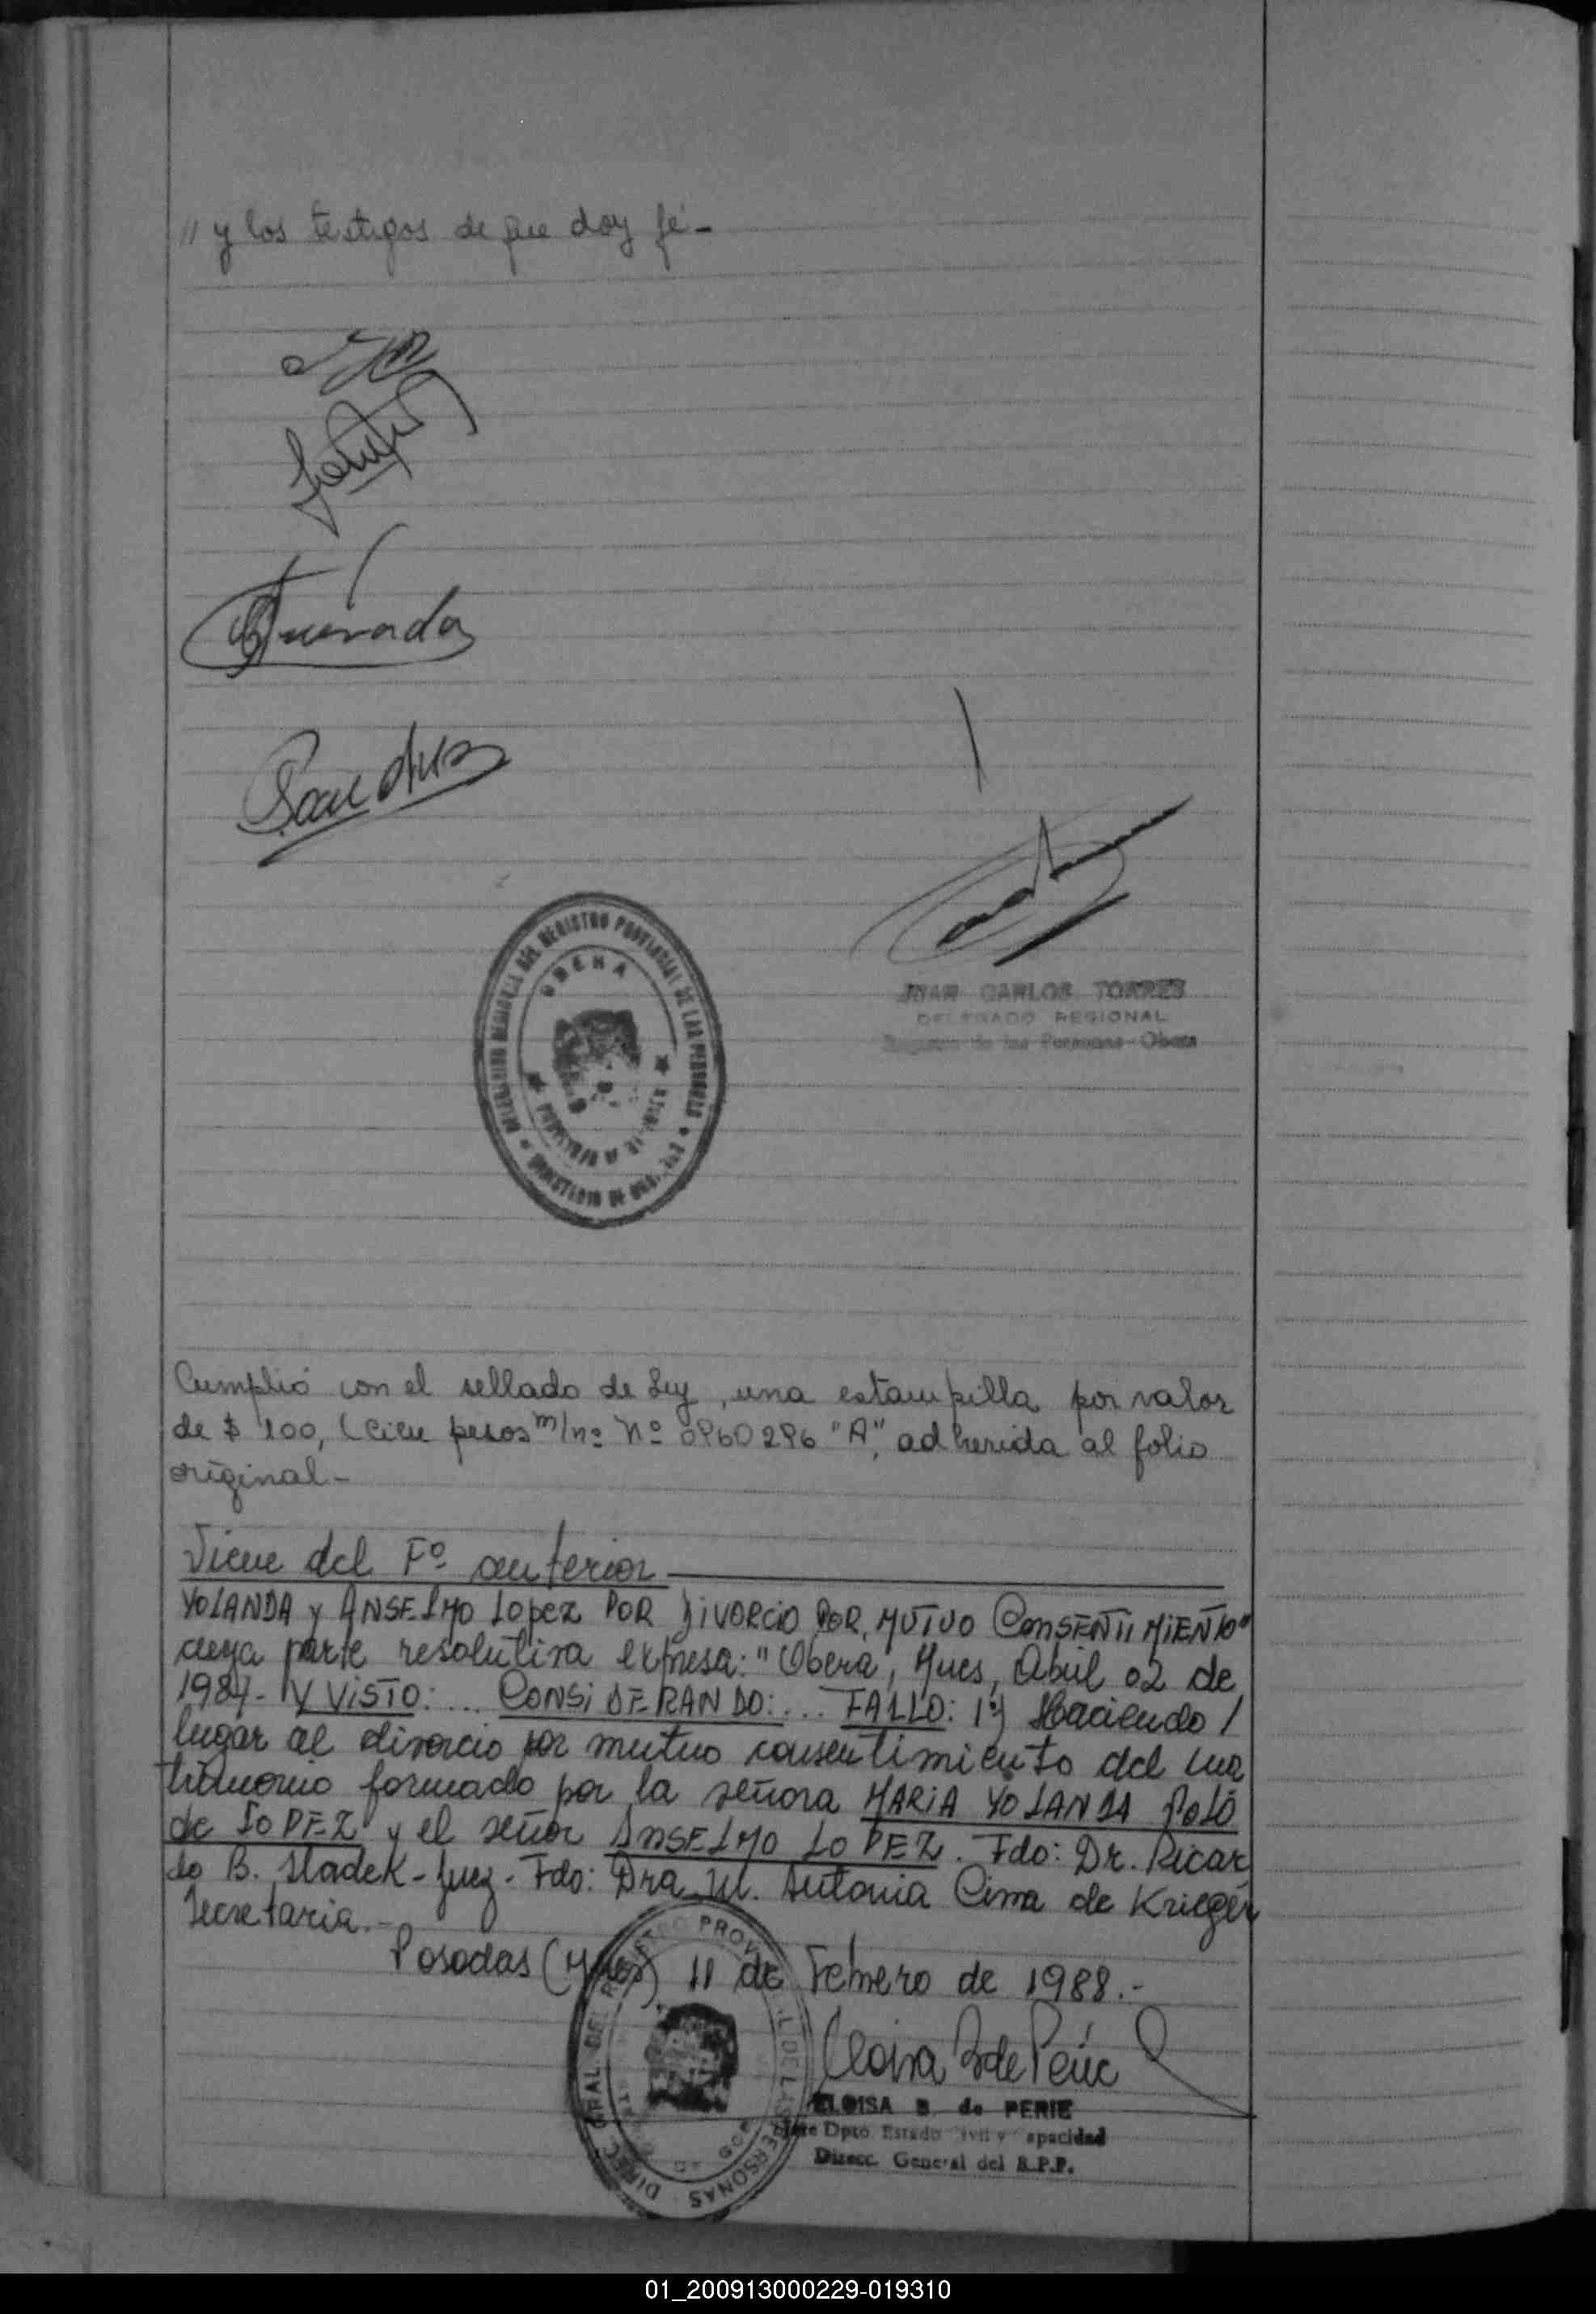 // y los testigos de que doy fé-
Quevada
DELEGACION REGIONAL DEL REGISTRO PROVINCIAL DE LAS PERSONAS
OBERA
PROVINCIA DE MISIONES
JUAN CARLOS TORRES
DELEGADO REGIONAL
Registro de las Personas - Obera
Cumplió con el sellado de Ley, una estampilla por valor
de $ 100, (cien pesos m/n: Nº 0960296 "A", adherida al folio
original-
Viene del Fº anterior
YOLANDA y ANSELMO Lopez POR DiVORCiO POR MUTUO CONSENTiMiENTO"
cuya parte resolutiva expresa: "Oberá, Mnes, Abril 02 de
1984- Y ViSTO: ... CONSiDERANDO: ... FALLO: 1º) Haciendo /
lugar al divorcio por mutuo consentimiento del ma
trimonio formado por la señora MARiA YOLANDA POLÓ
de LOPEZ y el señor ANSELMO LOPEZ. Fdo: Dr. Ricar
do B. Sladek - Juez - Fdo: Dra. M. Antonia Cima de Krieger
Secretaria.-
Posadas (Mnes) 11 de Febrero de 1988.-
Eloisa B de Perié
ELOISA B. de PERIE
Jefe Dpto Estado Civil y Capacidad
Direcc. General del R.P.P.
DIREC. GRAL. DE REGISTRO PROVINCIAL DE LAS PERSONAS
01_200913000229-019310